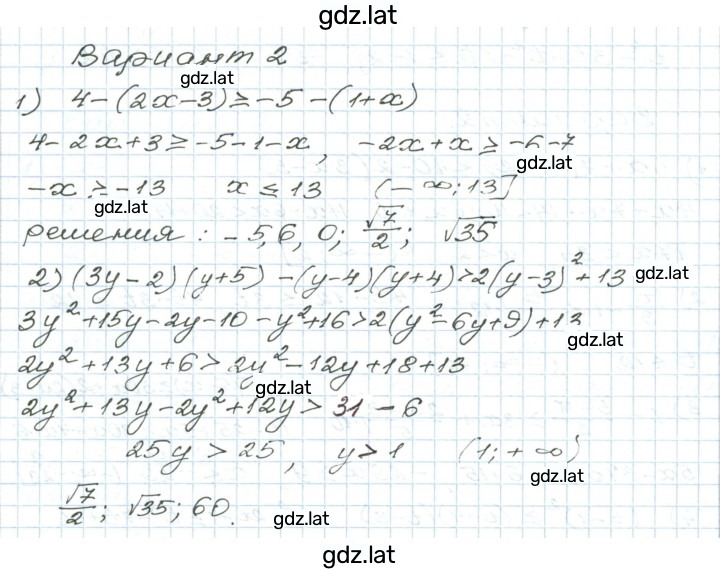 gdz.lat
Вариант 2
gdz.lat
1) 4-(2x-3)≥-5-(1+x)
4-2x+3≥-5-1-x, -2x+x≥-6-7
gdz.lat
-x≥-13 x≤13 (-∞;13]
gdz.lat
решения: -5,6, 0; √7/2; √35
2) (3y-2)(y+5)-(y-4)(y+4)>2(y-3)²+13
gdz.lat
3y²+15y-2y-10-y²+16>2(y²-6y+9)+13
gdz.lat
2y²+13y+6>2y²-12y+18+13
gdz.lat
2y²+13y-2y²+12y>31-6
25y>25, y>1 (1;+∞)
gdz.lat
√7/2; √35; 60.
gdz.lat
gdz.lat